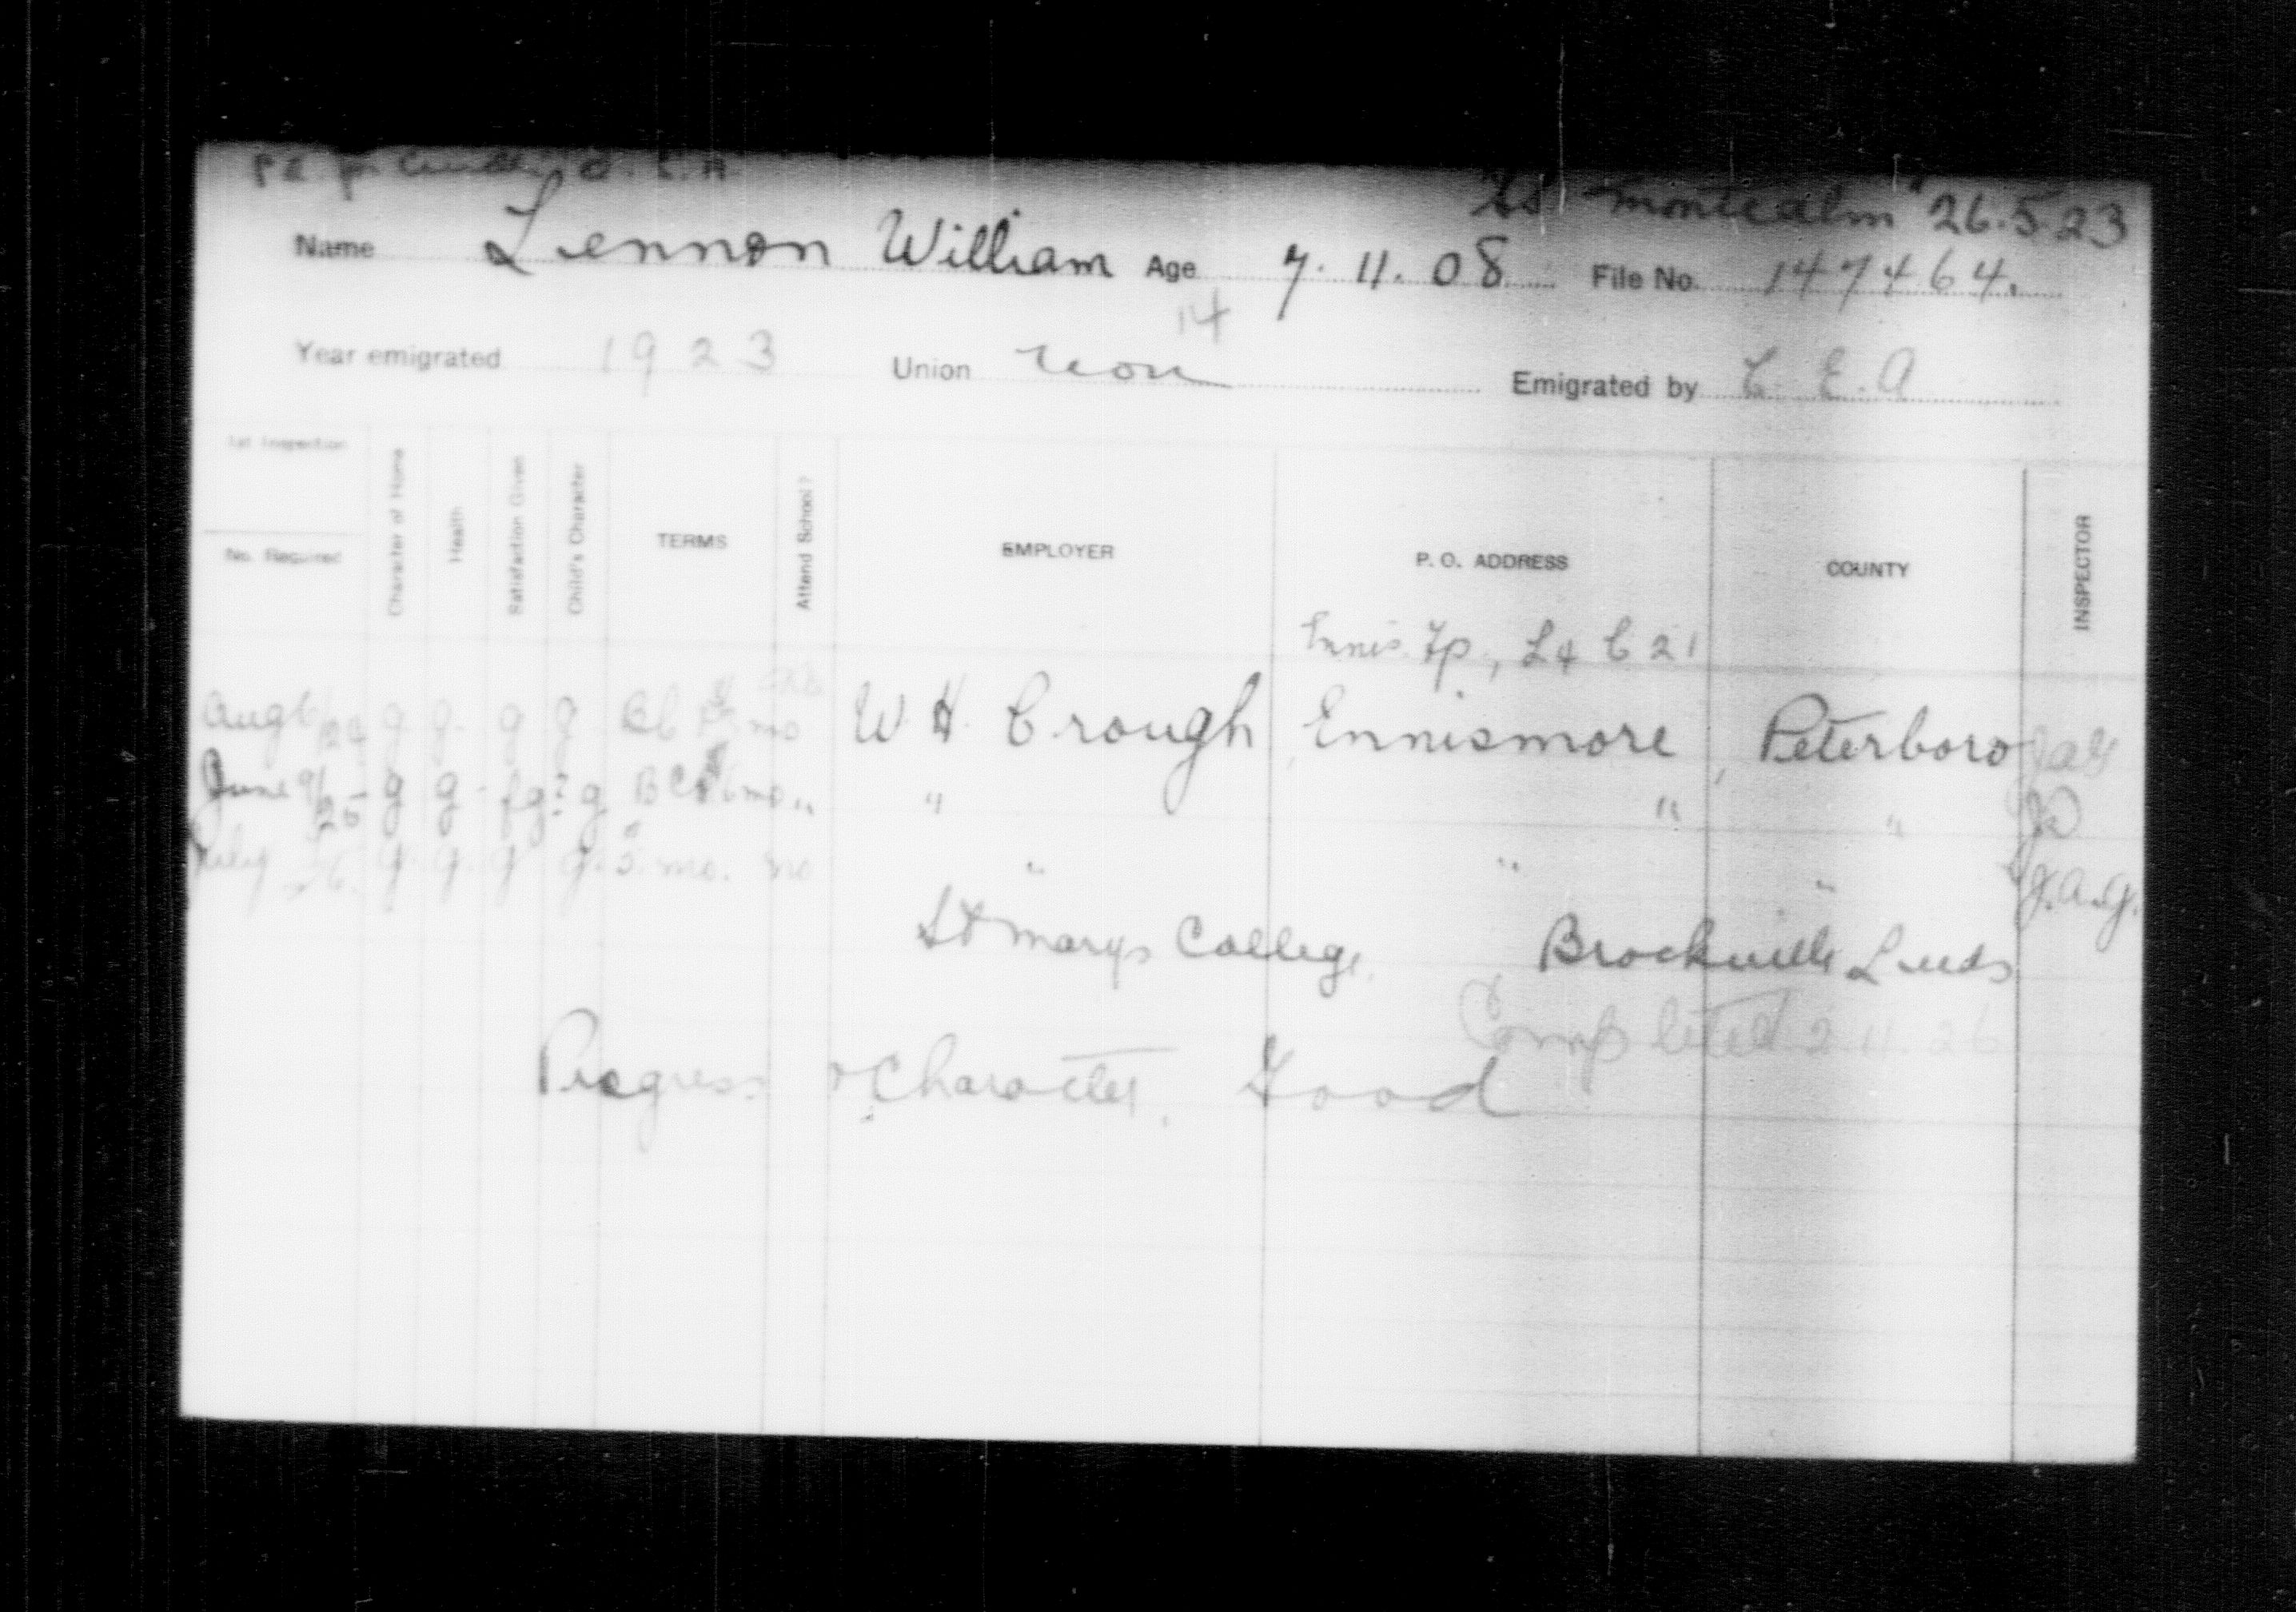 SS "Montcalm" 26.5.23
Name Lennon William Age 7.11.08 File No. 147464.
14
Year emigrated 1923 Union non Emigrated by C. E. A
1st Inspection
No. Required Character of Home Health Satisfaction Given Child's Character TERMS Attend School? EMPLOYER P. O. ADDRESS COUNTY INSPECTOR
Ennis. Tp., L4 C 21
Aug 6/24 g g. g g mo W. H. Crough, Ennismore, Peterboro
June 9/25 g g. fg g 6 mo " " " "
July 26. g. g. g g. 5. mo. no " " " J.A.G.
St Marys College. Brockville Leeds
Completed 2.11.26
Progress & Character. Good